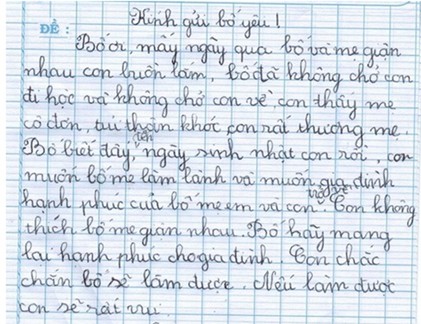 Kính gửi bố yêu!
ĐỀ:
Bố ơi, mấy ngày qua bố và mẹ giận
nhau con buồn lắm, bố đã không chở con
đi học và không chở con về, con thấy mẹ
cô đơn, tủi thân khóc con rất thương mẹ.
Bố biết đấy, đến ngày sinh nhật con rồi, con
muốn bố mẹ làm lành và muốn gia đình
hạnh phúc của bố mẹ em và con trở về. Con không
thích bố mẹ giận nhau. Bố hãy mang
lại hạnh phúc cho gia đình. Con chắc
chắn bố sẽ làm được. Nếu làm được
con sẽ rất vui.